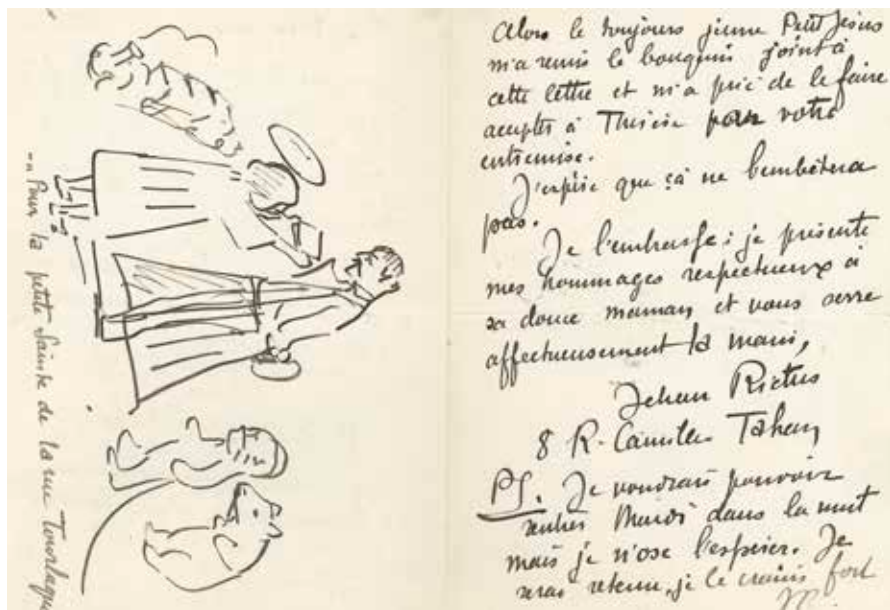 -- Pour la petite Sainte de la rue Tourlaque
Alors le toujours jeune Petit Jésus
m'a remis le bouquin joint à
cette lettre et m'a prié de le faire
accepter à Thérèse par votre
entremise.
J'espère que çà ne l'embêtera
pas.
Je l'embrasse ; je présente
mes hommages respectueux à
sa douce maman et vous serre
affectueusement la main,
Jehan Rictus
8 R. Camille Tahan
PS. Je voudrais pouvoir
rentrer Mardi dans la nuit
mais je n'ose l'espérer. Je
serai retenu, je le crains fort